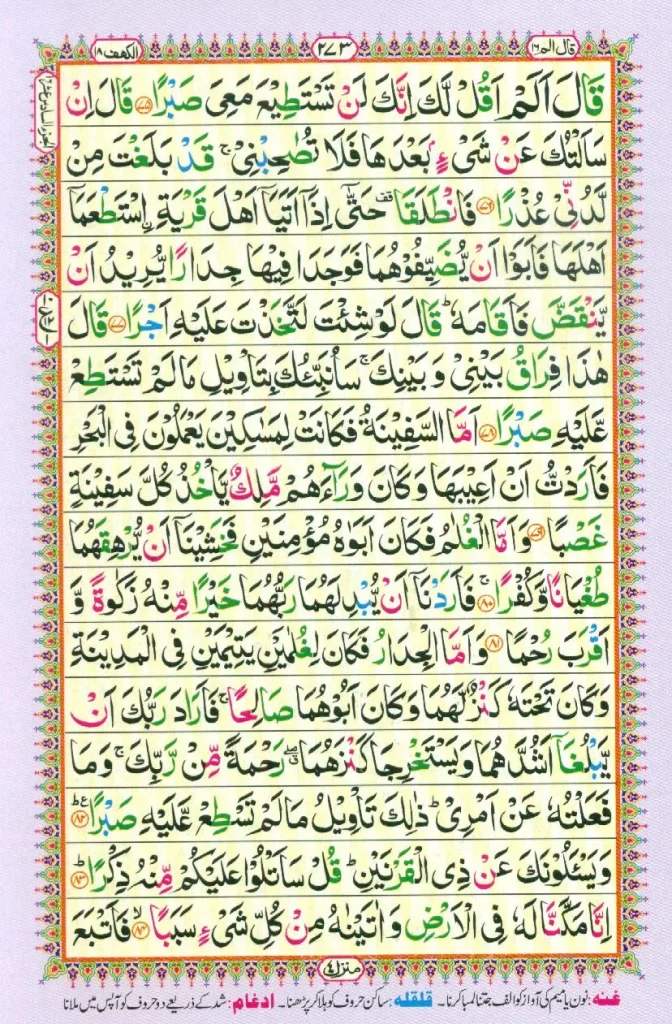 قال الم ١٦
٢٧٣
الكهف ١٨
قَالَ اَلَمْ اَقُلْ لَّكَ اِنَّكَ لَنْ تَسْتَطِيْعَ مَعِیَ صَبْرًا ﴿۷۵﴾ قَالَ اِنْ
سَاَلْتُكَ عَنْ شَیْءٍۭ بَعْدَهَا فَلَا تُصٰحِبْنِیْ ۚ قَدْ بَلَغْتَ مِنْ
لَّدُنِّیْ عُذْرًا ﴿۷۶﴾ فَانْطَلَقَا ٙ حَتّٰۤی اِذَاۤ اَتَیَاۤ اَهْلَ قَرْیَةِ ِ۟اسْتَطْعَمَاۤ
اَهْلَهَا فَاَبَوْا اَنْ یُّضَیِّفُوْهُمَا فَوَجَدَا فِیْهَا جِدَارًا یُّرِیْدُ اَنْ
یَّنْقَضَّ فَاَقَامَهٗ ؕ قَالَ لَوْ شِئْتَ لَتَّخَذْتَ عَلَیْهِ اَجْرًا ﴿۷۷﴾ قَالَ
هٰذَا فِرَاقُ بَیْنِیْ وَ بَیْنِكَ ۚ سَاُنَبِّئُكَ بِتَاْوِیْلِ مَا لَمْ تَسْتَطِعْ
عَّلَیْهِ صَبْرًا ﴿۷۸﴾ اَمَّا السَّفِیْنَةُ فَكَانَتْ لِمَسٰكِیْنَ یَعْمَلُوْنَ فِی الْبَحْرِ
فَاَرَدْتُّ اَنْ اَعِیْبَهَا وَ كَانَ وَرَآءَهُمْ مَّلِكٌ یَّاْخُذُ كُلَّ سَفِیْنَةٍ
غَصْبًا ﴿۷۹﴾ وَ اَمَّا الْغُلٰمُ فَكَانَ اَبَوٰهُ مُؤْمِنَیْنِ فَخَشِیْنَاۤ اَنْ یُّرْهِقَهُمَا
طُغْیَانًا وَّ كُفْرًا ﴿۸۰﴾ ۚ فَاَرَدْنَاۤ اَنْ یُّبْدِلَهُمَا رَبُّهُمَا خَیْرًا مِّنْهُ زَكٰوةً وَّ
اَقْرَبَ رُحْمًا ﴿۸۱﴾ وَ اَمَّا الْجِدَارُ فَكَانَ لِغُلٰمَیْنِ یَتِیْمَیْنِ فِی الْمَدِیْنَةِ
وَ كَانَ تَحْتَهٗ كَنْزٌ لَّهُمَا وَ كَانَ اَبُوْهُمَا صَالِحًا ۚ فَاَرَادَ رَبُّكَ اَنْ
یَّبْلُغَاۤ اَشُدَّهُمَا وَ یَسْتَخْرِجَا كَنْزَهُمَا ۖۗ رَحْمَةً مِّنْ رَّبِّكَ ۚ وَ مَا
فَعَلْتُهٗ عَنْ اَمْرِیْ ؕ ذٰلِكَ تَاْوِیْلُ مَا لَمْ تَسْطِعْ عَّلَیْهِ صَبْرًا ﴿۸۲﴾ؕ
وَ یَسْـَٔلُوْنَكَ عَنْ ذِی الْقَرْنَیْنِ ؕ قُلْ سَاَتْلُوْا عَلَیْكُمْ مِّنْهُ ذِكْرًا ﴿۸۳﴾ؕ
اِنَّا مَكَّنَّا لَهٗ فِی الْاَرْضِ وَ اٰتَیْنٰهُ مِنْ كُلِّ شَیْءٍ سَبَبًا ﴿۸۴﴾ۙ فَاَتْبَعَ
منزل ٤
غنه: نون یا میم کی آواز کو الف جتنا لمبا کرنا۔ قلقله: ساکن حروف کو ہلا کر پڑھنا۔ ادغام: شد کے ذریعے دو حروف کو آپس میں ملانا